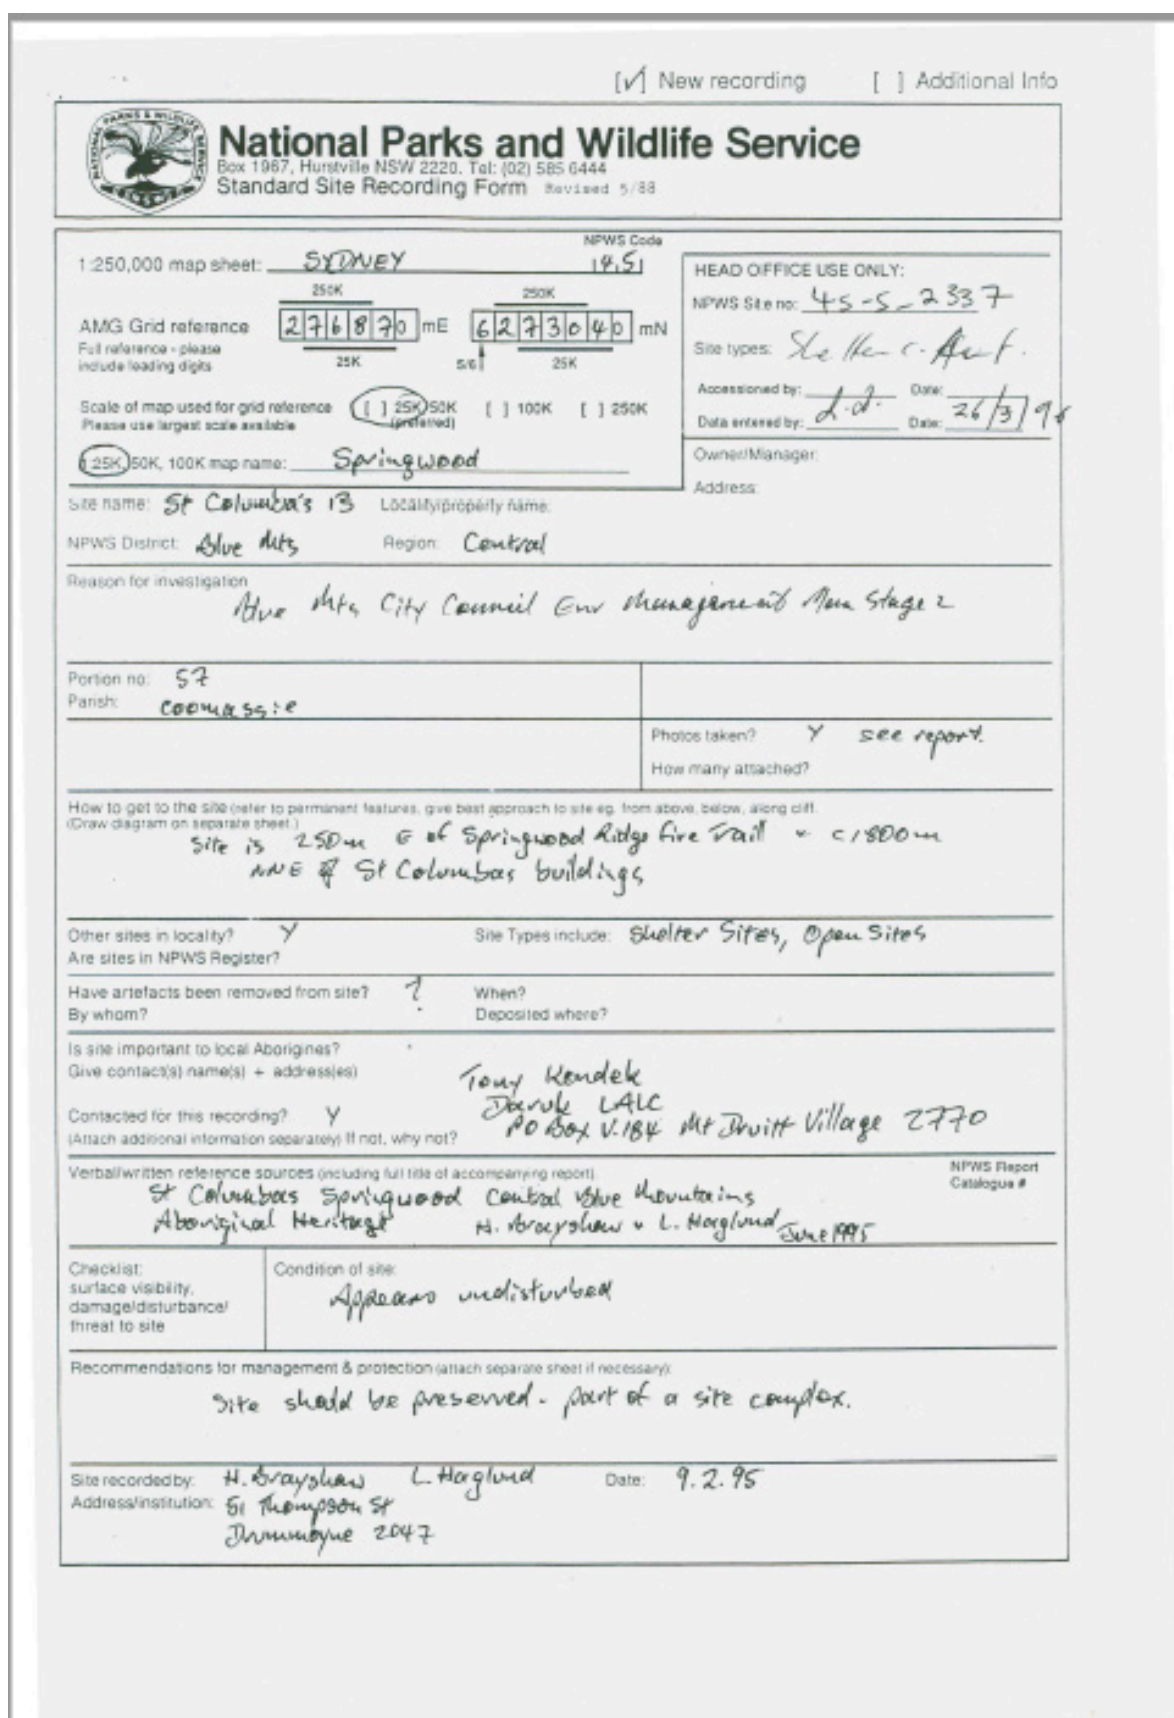 [✓] New recording [ ] Additional Info
NATIONAL PARKS & WILDLIFE SERVICE
National Parks and Wildlife Service
Box 1967, Hurstville NSW 2220. Tel: (02) 585 6444
Standard Site Recording Form Revised 5/88
NPWS Code
1:250,000 map sheet: SYDNEY 14.51
250K 250K
AMG Grid reference 276870 mE 6273040 mN
Full reference - please
include leading digits
25K 5/6 25K
Scale of map used for grid reference [ ] 25K/50K [ ] 100K [ ] 250K
Please use largest scale available (preferred)
25K, 50K, 100K map name: Springwood
HEAD OFFICE USE ONLY:
NPWS Site no: 45-5-2337
Site types: Shelter c. Art.
Accessioned by: Date:
Data entered by: Date: 26/3/96
Owner/Manager:
Address:
Site name: St Columba's 13 Locality/property name:
NPWS District: Blue Mts Region: Central
Reason for investigation
Blue Mts City Council Env Management Plan Stage 2
Portion no: 57
Parish: Coomassie
Photos taken? Y see report.
How many attached?
How to get to the site (refer to permanent features, give best approach to site eg. from above, below, along cliff.
(Draw diagram on separate sheet.)
Site is 250m E of Springwood Ridge Fire Trail & c1800m
NNE of St Columbas buildings
Other sites in locality? Y Site Types include: Shelter Sites, Open Sites
Are sites in NPWS Register?
Have artefacts been removed from site? ? When?
By whom? Deposited where?
Is site important to local Aborigines?
Give contact(s) name(s) + address(es) Tony Kondek
Daruk LALC
Contacted for this recording? Y PO Box V.184 Mt Druitt Village 2770
(Attach additional information separately) If not, why not?
Verbal/written reference sources (including full title of accompanying report). NPWS Report
Catalogue #
St Columbas Springwood Central Blue Mountains
Aboriginal Heritage H. Brayshaw & L. Haglund June 1995
Checklist: Condition of site:
surface visibility,
damage/disturbance/
threat to site
Appears undisturbed
Recommendations for management & protection (attach separate sheet if necessary):
Site should be preserved - part of a site complex.
Site recorded by: H. Brayshaw L. Haglund Date: 9.2.95
Address/institution: 51 Thompson St
Drummoyne 2047